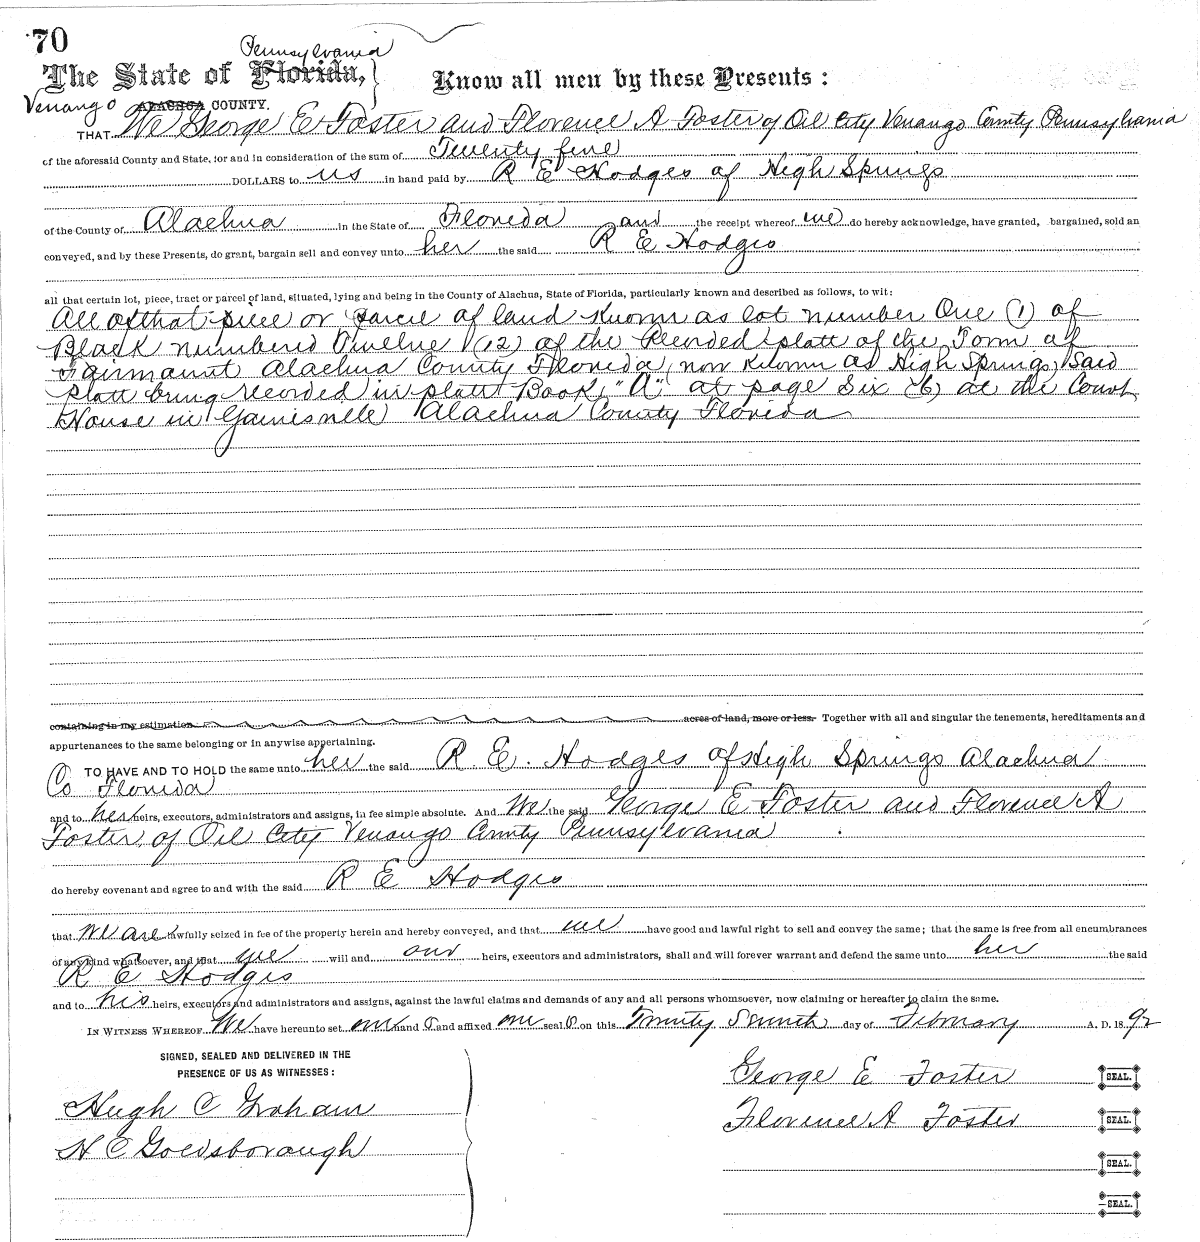 70
Pennsylvania
The State of Florida, Know all men by these Presents :
Venango ALACHUA COUNTY.
THAT We George E Foster and Florence A Foster of Oil City Venango County Pennsylvania
of the aforesaid County and State, for and in consideration of the sum of Twenty five
DOLLARS to us in hand paid by R E Hodges of High Springs
of the County of Alachua in the State of Florida and the receipt whereof we do hereby acknowledge, have granted, bargained, sold an
conveyed, and by these Presents, do grant, bargain sell and convey unto her the said R E Hodges
all that certain lot, piece, tract or parcel of land, situated, lying and being in the County of Alachua, State of Florida, particularly known and described as follows, to wit:
All of that piece or parcel of land Known as lot number One (1) of
Block numbered Twelve (12) of the Recorded platt of the Town of
Fairmount Alachua County Florida, now Known as High Springs, Said
platt being recorded in platt Book "A" at page Six (6) at the Court
House in Gainesville Alachua County Florida
containing in my estimation acres of land, more or less. Together with all and singular the tenements, hereditaments and
appurtenances to the same belonging or in anywise appertaining.
TO HAVE AND TO HOLD the same unto her the said R. E. Hodges of High Springs Alachua
Co Florida
and to her heirs, executors, administrators and assigns, in fee simple absolute. And We the said George E Foster and Florence A
Foster of Oil City Venango County Pennsylvania
do hereby covenant and agree to and with the said R E Hodges
that we are lawfully seized in fee of the property herein and hereby conveyed, and that we have good and lawful right to sell and convey the same; that the same is free from all encumbrances
of any kind whatsoever, and that we will and our heirs, executors and administrators, shall and will forever warrant and defend the same unto her the said
R E Hodges
and to his heirs, executors and administrators and assigns, against the lawful claims and demands of any and all persons whomsoever, now claiming or hereafter to claim the same.
IN WITNESS WHEREOF We have hereunto set our hand s and affixed our seal s on this Twenty Seventh day of February A. D. 1892
SIGNED, SEALED AND DELIVERED IN THE
PRESENCE OF US AS WITNESSES :
Hugh C Graham
N C Goldsborough
George E Foster SEAL.
Florence A Foster SEAL.
SEAL.
SEAL.